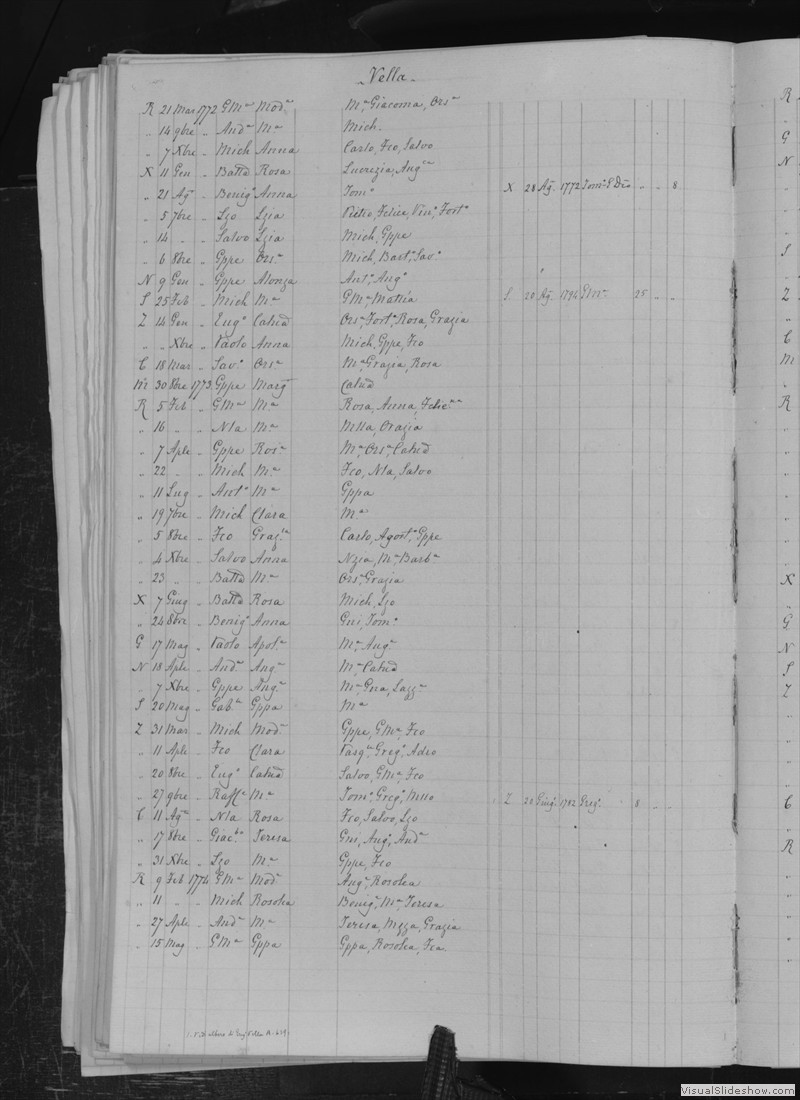 Nella.
R 21 Mar 1772 GMa Moda Ma Giacoma, Orsa
" 14 9bre " Anda Ma Mich.
" 7 Xbre " Mich Anna Carlo, Fco, Salvo
X 11 Gen " Batta Rosa Lucrezia, Anga
" 21 Ago " Benigo Anna Tomo X 28 Ago 1772 " " 8
" 5 7bre " Lzo Lzia Pietro, Felice, Vino, Forto
" 14 " " Salvo Lzia Mich, Gppe
" 6 8bre " Gppe Orsa Mich, Barto, Savo
N 9 Gen " Gppe Alonza Anto, Ango
S 25 Feb " Mich Ma GMa, Mattia S. 28 Ago 1794 25 " "
Z 14 Gen " Eugo Catnd Orsa, Forta, Rosa, Grazia
" " Xbre " Paolo Anna Mich, Gppe, Fco
C 18 Mar " Savo Orsa Ma, Grazia, Rosa
M 30 8bre 1773 Gppe Marga Catnd
R 5 Feb " GMa Ma Rosa, Anna, Felicna
" 16 " " Nla Ma Mlla, Orazia
" 7 Aple " Gppe Rosa Ma, Orsa, Catnd
" 22 " " Mich Ma Fco, Nla, Salvo
" 11 Lug " Anto Ma Gppa
" 19 7bre " Mich Clara Ma
" 5 8bre " Fco Graza Carlo, Agosto, Gppe
" 4 Xbre " Salvo Anna Nzia, Ma, Barba
" 23 " " Batta Ma Orsa, Grazia
X 7 Giug " Batta Rosa Mich, Lzo
" 24 8bre " Benigo Anna Gni, Tomo
G 17 Mag " Paolo Apola Ma, Anga
N 18 Aple " Anda Anga Ma, Catnd
" 7 Xbre " Gppe Anga Ma, Gna, Lazza
S 20 Mag " Gable Gppa Ma
Z 31 Mar " Mich Moda Gppe, GMa, Fco
" 11 Aple " Fco Clara Pasqle, Grego, Adro
" 20 8bre " Eugo Catnd Salvo, GMa, Fco
" 27 9bre " Raffle Ma Tomo, Grego, Mllo Z 28 Giugo 1782 Grego 8 " "
C 11 Ago " Nla Rosa Fco, Salvo, Lzo
" 17 8bre " Giacmo Teresa Gni, Ango, Anda
" 31 Xbre " Lzo Ma Gppe, Fco
R 9 Feb 1774 GMa Moda Ango, Rosolea
" 11 " " Mich Rosolea Beniga, Ma, Teresa
" 27 Aple " Anda Ma Teresa, Mzza, Grazia
" 15 Mag " GMa Gppa Gppa, Rosolea, Fca
VisualSlideshow.com